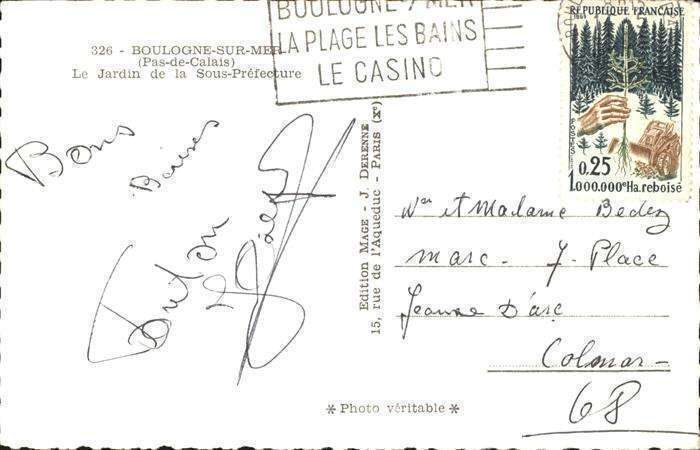 BOULOGNE S/ MER
LA PLAGE LES BAINS
LE CASINO
326 - BOULOGNE-SUR-MER
(Pas-de-Calais)
Le Jardin de la Sous-Préfecture
REPUBLIQUE FRANÇAISE
1965
POSTES
0.25
1.000.000e Ha. reboisé
Bons
Baisers
Edition MAGE - J. DERENNE
15, rue de l'Aqueduc - PARIS (Xe)
et Madame Bedez
Marc - 7. Place
Jeanne D'arc
Colmar -
68
* Photo véritable *